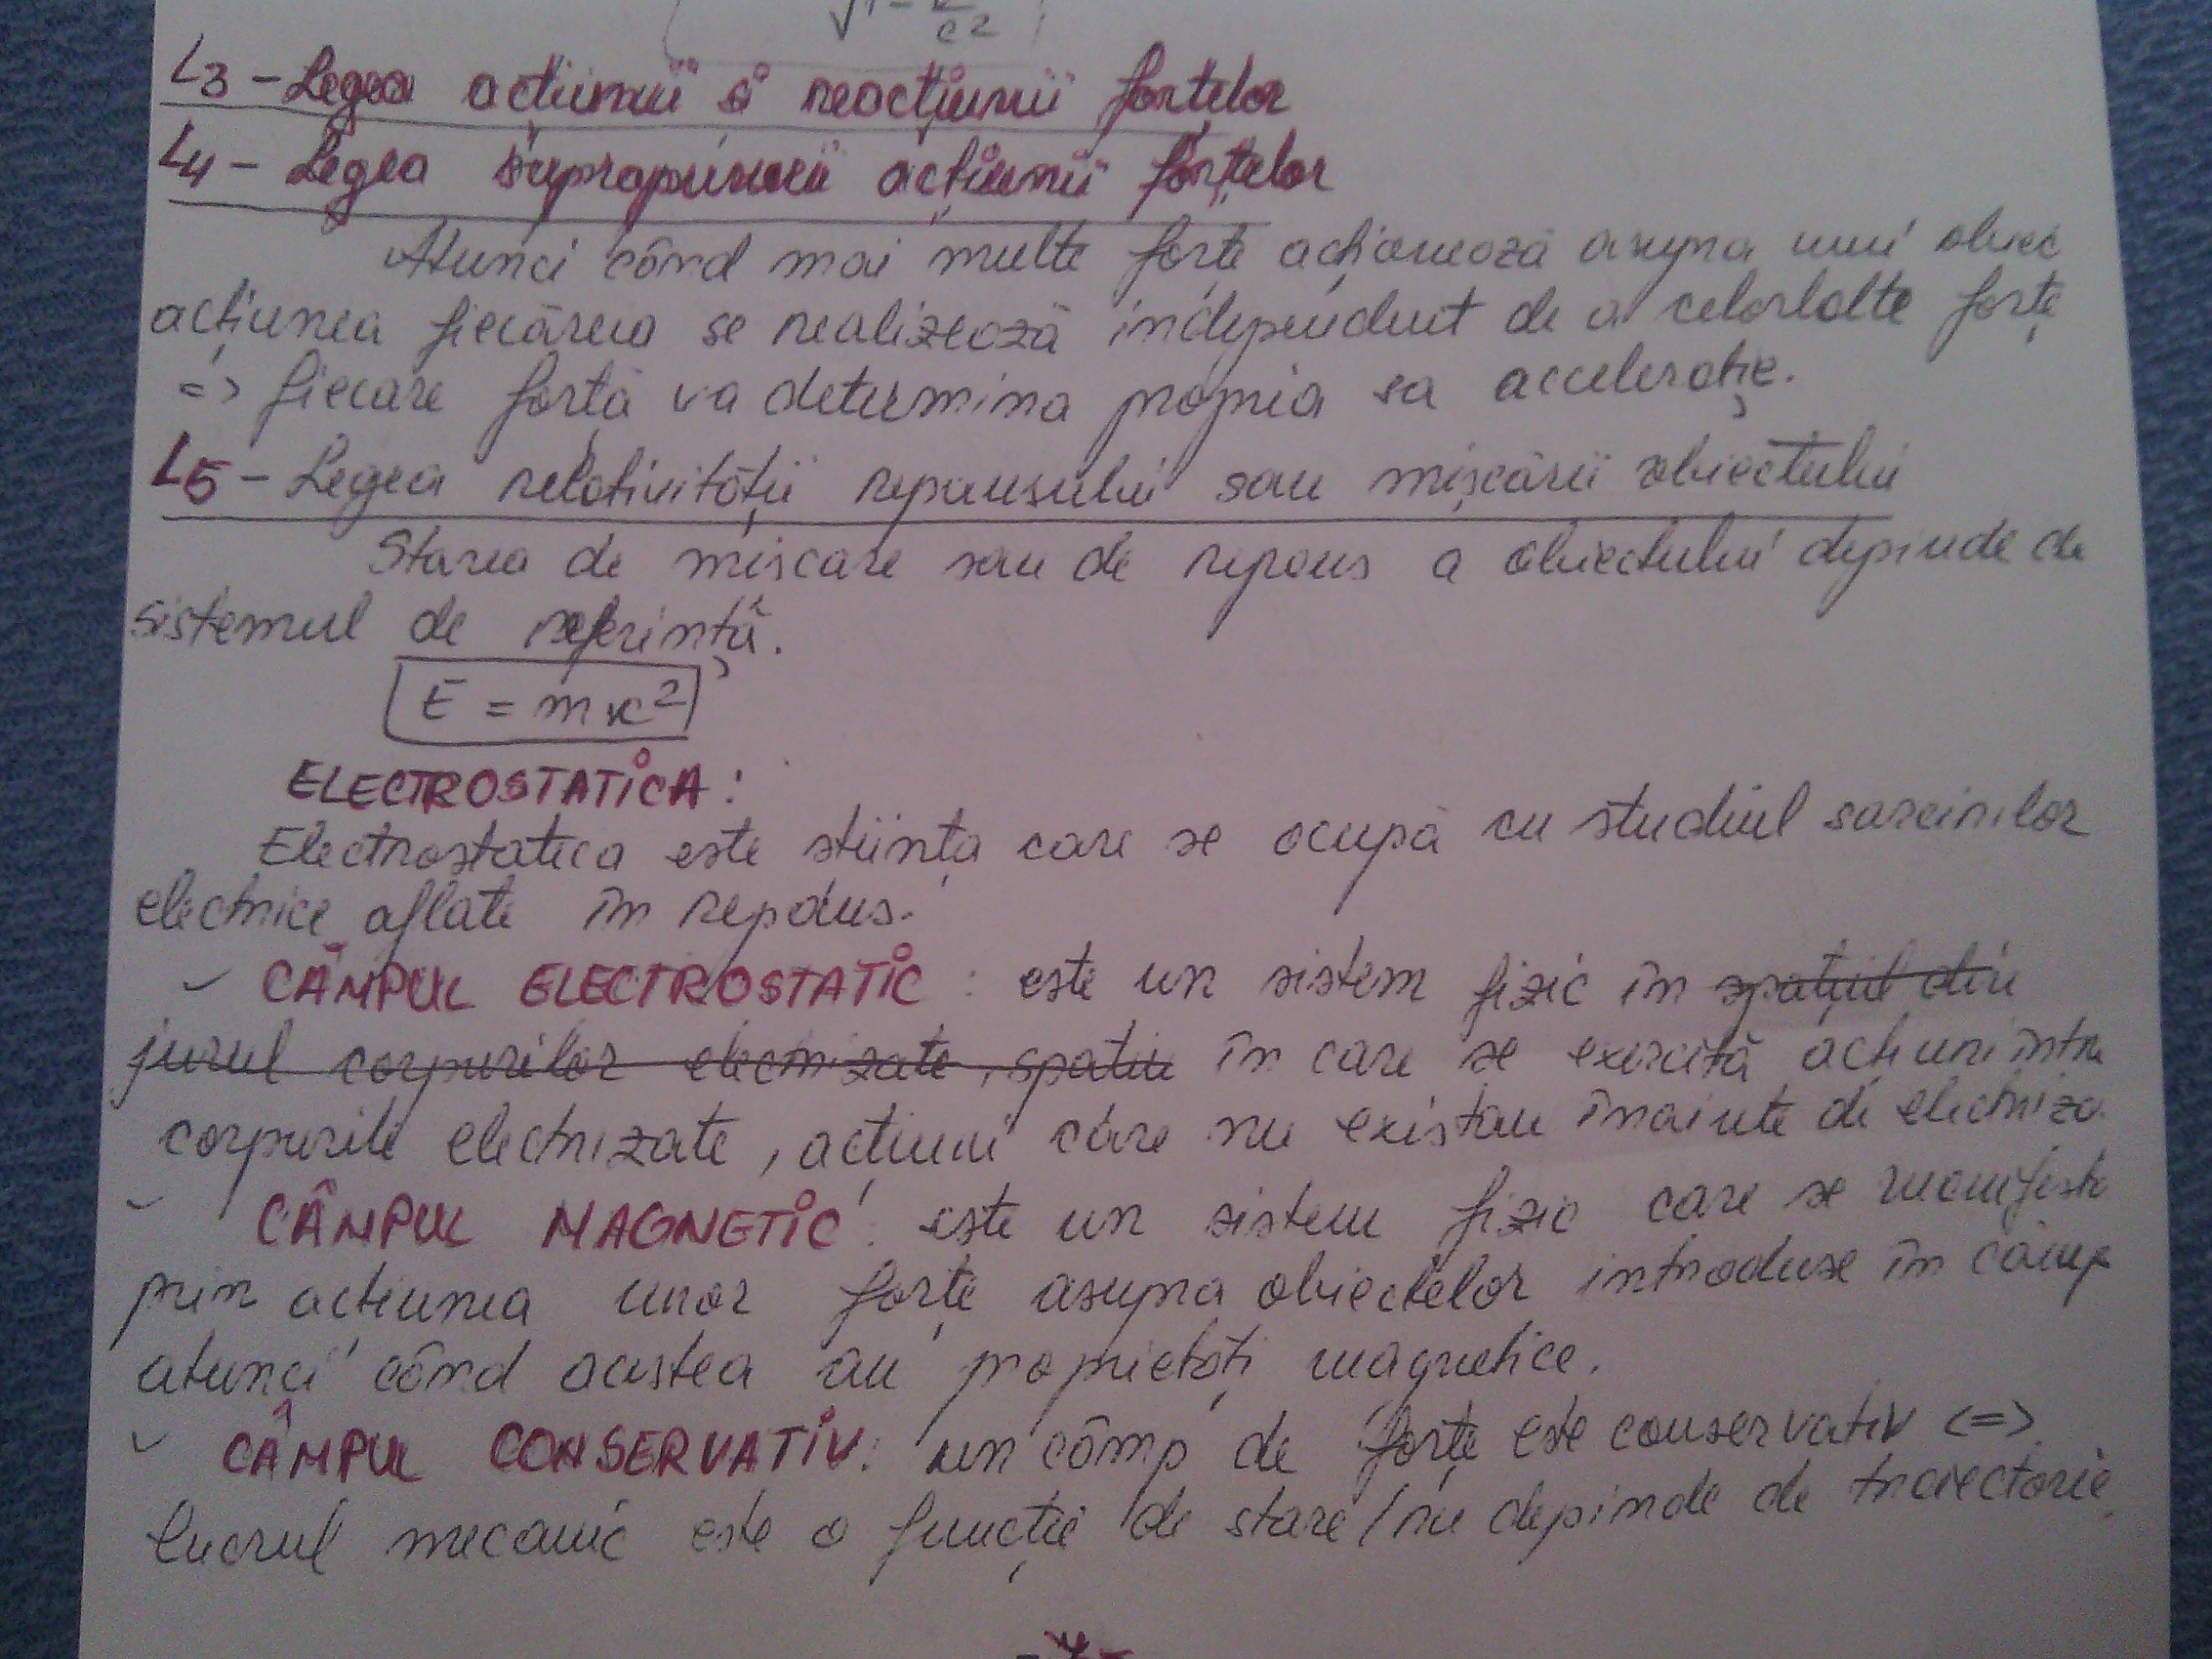 √1 - c2
L3 - Legea acțiunii și reacțiunii forțelor
L4 - Legea suprapunerii acțiunii forțelor
Atunci când mai multe forțe acționează asupra unui obiec
acțiunea fiecăreia se realizează independent de a celorlalte forțe
=> fiecare forță va determina propria sa accelerație.
L5 - Legea relativității repausului sau mișcării obiectului
Starea de miscare sau de repaus a obiectului depinde de
sistemul de referință.
E = mc²
ELECTROSTATICA:
Electrostatica este stiința care se ocupă cu studiul sarcinilor
electrice aflate în repaus.
CÂMPUL ELECTROSTATIC: este un sistem fizic în spațiul din
jurul corpurilor electrizate, spatiu în care se exercită acțiuni intre
corpurile electrizate, acțiuni care nu existau înainte de electriza
CÂMPUL MAGNETIC: este un sistem fizic care se manifesta
prin actiunea unor forțe asupra obiectelor introduse în câmp
atunci când acestea au proprietăți magnetice.
CÂMPUL CONSERVATIV: un câmp de forțe este conservativ <=>
lucrul mecanic este o funcție de stare / nu depinde de traiectorie.